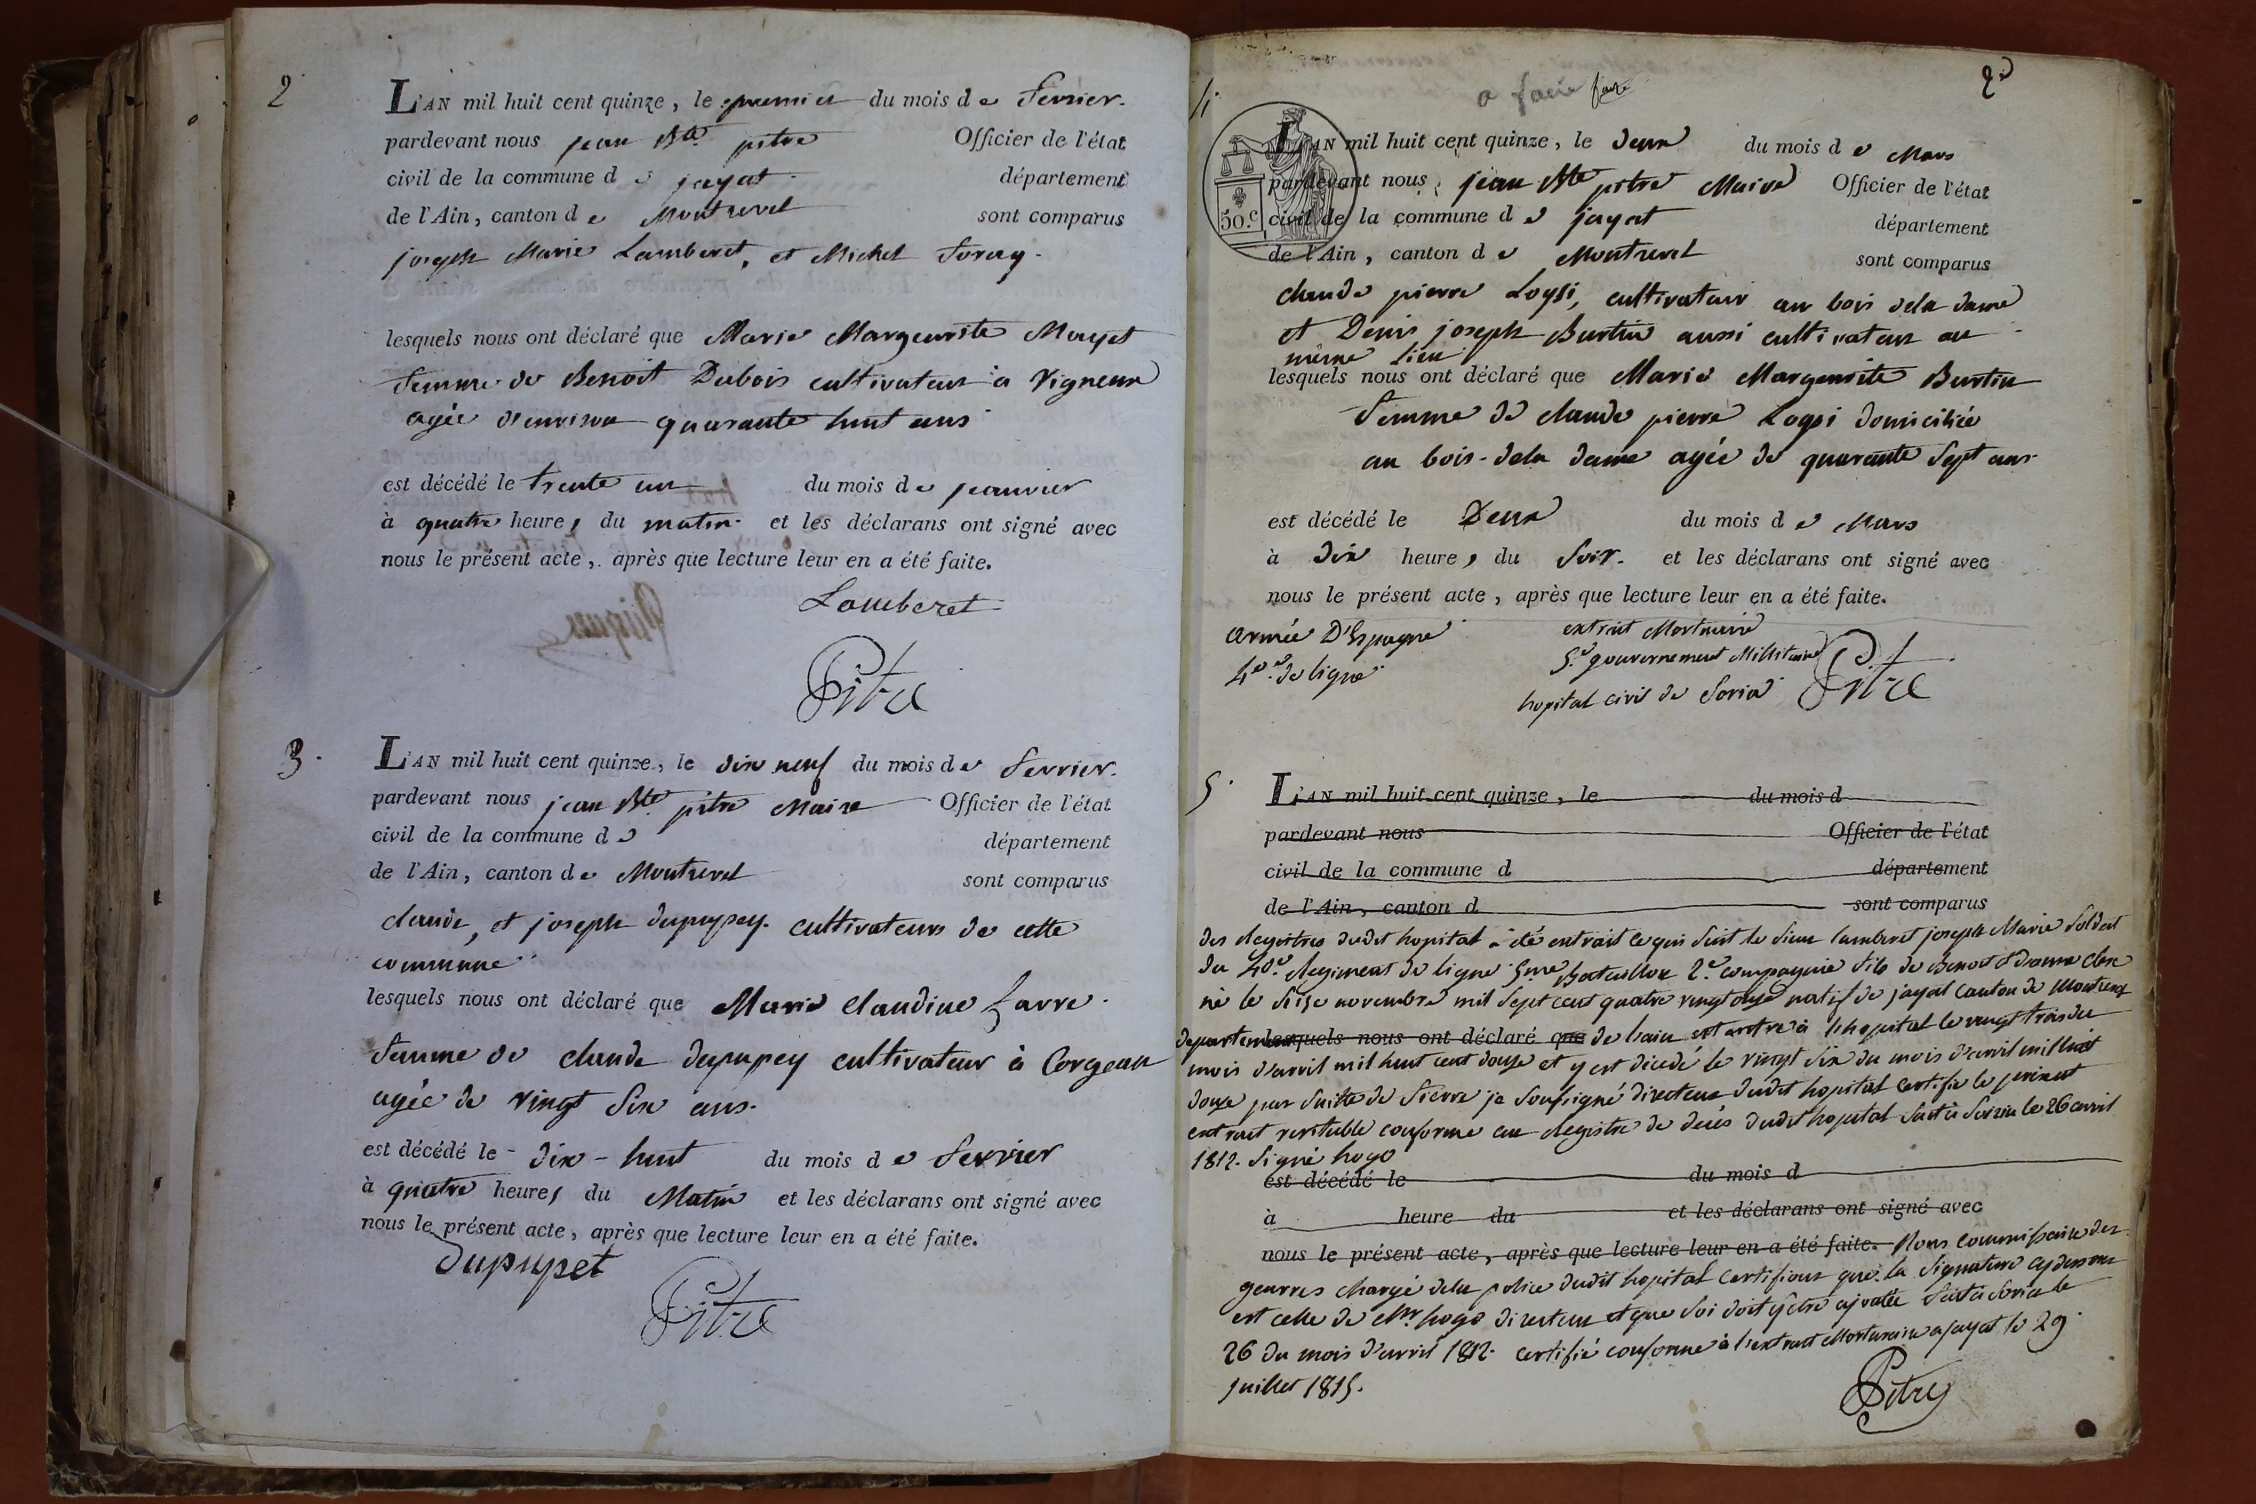 2
L'AN mil huit cent quinze, le premier du mois de fevrier.
pardevant nous jean Bte pitre Officier de l'état
civil de la commune de jayat département
de l'Ain, canton de Montrevel sont comparus
joseph Marie Lamberet, et Michel
lesquels nous ont déclaré que Marie Margeurite Mayet
femme de Benoit Dubois cultivateur a Vigneux
agée d'environ quarante huit ans
est décédé le trente un du mois de jeanvier
à quatre heures du matin et les déclarans ont signé avec
nous le présent acte, après que lecture leur en a été faite.
Lamberet
Pitre
3.
L'AN mil huit cent quinze, le dix neuf du mois de fevrier.
pardevant nous jean Bte pitre Maire Officier de l'état
civil de la commune de département
de l'Ain, canton de Montrevel sont comparus
claude, et joseph dupupey cultivateurs de cette
commune
lesquels nous ont déclaré que Marie Claudine favre
femme de claude dupupey cultivateur à Corgeat
agée de vingt six ans.
est décédé le dix-huit du mois de fevrier
à quatre heures du Matin et les déclarans ont signé avec
nous le présent acte, après que lecture leur en a été faite.
dupupet
Pitre
2e
4.
50.c
L'AN mil huit cent quinze, le deux du mois de Mars
pardevant nous jean Bte pitre Maire Officier de l'état
civil de la commune de jayat département
de l'Ain, canton de Montrevel sont comparus
claude pierre Loysi, cultivateur au bois dela dame
et Denis joseph Burtin aussi cultivateur au
même lieu
lesquels nous ont déclaré que Marie Margeurite Burtin
femme de claude pierre Loysi domiciliée
au bois-dela dame agée de quarante sept ans
est décédé le Deux du mois de Mars
à dix heures du soir. et les déclarans ont signé avec
nous le présent acte, après que lecture leur en a été faite.
armée D'Espagne extrait Mortuaire
5.e gouvernement Militaire
4e de ligne
hopital civil de Soria Pitre
5.
L'AN mil huit cent quinze, le du mois d
pardevant nous Officier de l'état
civil de la commune d département
de l'Ain, canton d sont comparus
des Registres dudit hopital a été extrait ce qui suit le sieur lamberet joseph Marie soldat
du 40e Regiment de ligne 5me Bataillon 2e compagnie fils de Benoit &
né le seize novembre mil sept cent quatre vingt onze natif de jayat canton de Montrevel
departement lesquels nous ont déclaré que de lain est entré à lhopital le vingt trois du
mois d'avril mil huit cent douze et y est décédé le vingt six du mois d'avril mil huit
douze par suitte de fievre je soussigné directeur dudit hopital certifie le présent
extrait veritable conforme au Registre de decés dudit hopital fait à Soria le 26 avril
1812. signé hogo
est décédé le du mois d
à heure du et les déclarans ont signé avec
nous le présent acte, après que lecture leur en a été faite. Nous commissaire des
geurres chargé dela police dudit hopital certifions que la signature cydessus
est celle de Mr. hogo directeur et que foi doit y être ajoutée fait à Soria le
26 du mois d'avril 1812. certifié conforme à l'extrait Mortuaire a jayat le 29
juillet 1815.
Pitre